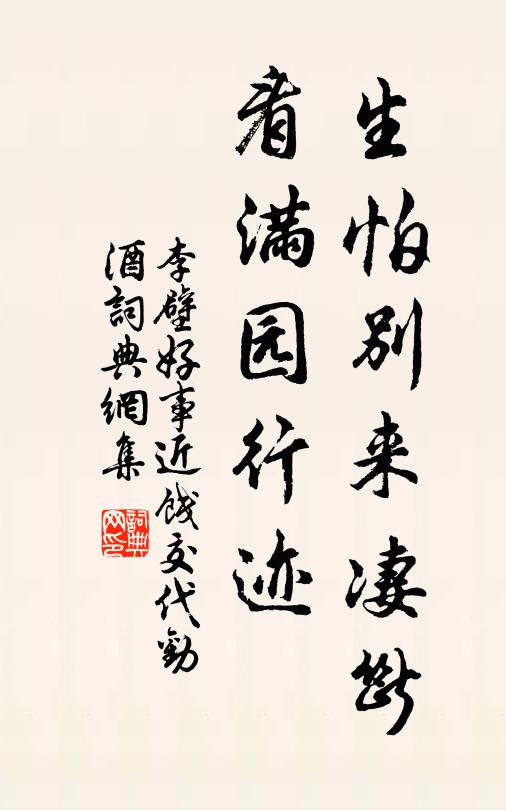 生怕别来凄断
看满园行迹
李壁好事近饯交代劝
酒詞典網集
詞典网印